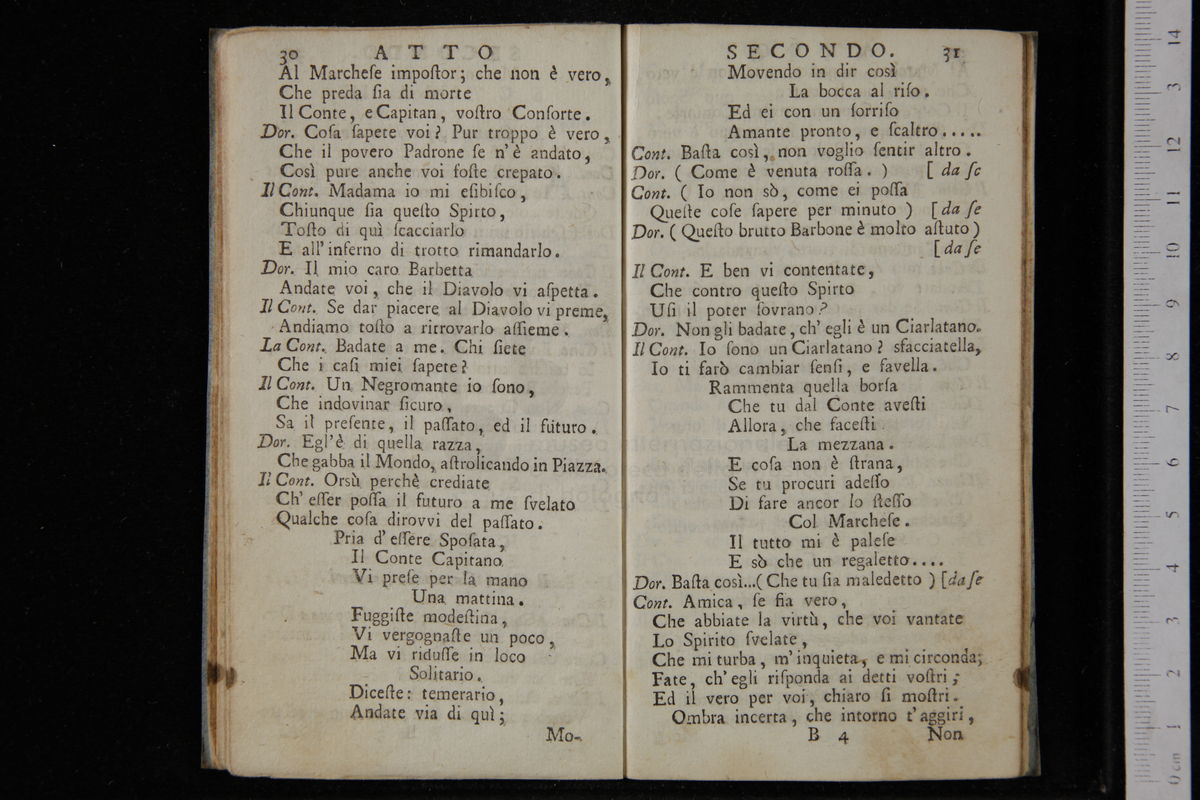 30 ATTO
Al Marcheſe impoſtor; che non è vero,
Che preda ſia di morte
Il Conte, e Capitan, voſtro Conſorte.
Dor. Coſa ſapete voi? Pur troppo è vero,
Che il povero Padrone ſe n'è andato,
Così pure anche voi foſte crepato.
Il Cont. Madama io mi eſibiſco,
Chiunque ſia queſto Spirto,
Toſto di quì ſcacciarlo
E all'inferno di trotto rimandarlo.
Dor. Il mio caro Barbetta
Andate voi, che il Diavolo vi aſpetta.
Il Cont. Se dar piacere al Diavolo vi preme,
Andiamo toſto a ritrovarlo aſſieme.
La Cont. Badate a me. Chi ſiete
Che i caſi miei ſapete?
Il Cont. Un Negromante io ſono,
Che indovinar ſicuro,
Sa il preſente, il paſſato, ed il futuro.
Dor. Egl'è di quella razza,
Che gabba il Mondo, aſtrolicando in Piazza.
Il Cont. Orsù perchè crediate
Ch' eſſer poſſa il futuro a me ſvelato
Qualche coſa dirovvi del paſſato.
Pria d'eſſere Spoſata,
Il Conte Capitano
Vi preſe per la mano
Una mattina.
Fuggiſte modeſtina,
Vi vergognaſte un poco,
Ma vi riduſſe in loco
Solitario.
Diceſte: temerario,
Andate via di quì;
Mo-
SECONDO. 31
Movendo in dir così
La bocca al riſo.
Ed ei con un ſorriſo
Amante pronto, e ſcaltro.....
Cont. Baſta così, non voglio ſentir altro.
Dor. ( Come è venuta roſſa. ) [ da ſe
Cont. ( Io non sò, come ei poſſa
Queſte coſe ſapere per minuto ) [ da ſe
Dor. ( Queſto brutto Barbone è molto aſtuto )
[ da ſe
Il Cont. E ben vi contentate,
Che contro queſto Spirto
Uſi il poter ſovrano?
Dor. Non gli badate, ch' egli è un Ciarlatano.
Il Cont. Io ſono un Ciarlatano? sfacciatella,
Io ti farò cambiar ſenſi, e favella.
Rammenta quella borſa
Che tu dal Conte aveſti
Allora, che faceſti
La mezzana.
E coſa non è ſtrana,
Se tu procuri adeſſo
Di fare ancor lo ſteſſo
Col Marcheſe.
Il tutto mi è paleſe
E sò che un regaletto....
Dor. Baſta così...( Che tu ſia maledetto ) [ da ſe
Cont. Amica, ſe fia vero,
Che abbiate la virtù, che voi vantate
Lo Spirito ſvelate,
Che mi turba, m'inquieta, e mi circonda;
Fate, ch'egli riſponda ai detti voſtri;
Ed il vero per voi, chiaro ſi moſtri.
Ombra incerta, che intorno t'aggiri,
B 4 Non
14
3
12
11
10
9
8
7
6
5
4
3
2
1
0 cm